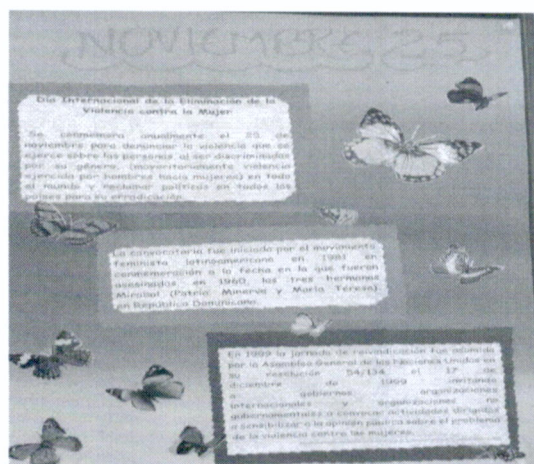 NOVIEMBRE 25
Día Internacional de la Eliminación de la
Violencia contra la Mujer
Se conmemora anualmente el 25 de
noviembre para denunciar la violencia que se
ejerce sobre las personas al ser discriminadas
por su género, (mayoritariamente violencia
ejercida por hombres hacia mujeres) en todo
el mundo y reclamar políticas en todos los
países para su erradicación.
La convocatoria fue iniciada por el movimiento
feminista latinoamericano en 1981 en
conmemoración a la fecha en la que fueron
asesinadas, en 1960, las tres hermanas
Mirabal (Patria, Minerva y María Teresa),
en República Dominicana.
En 1999 la jornada de reivindicación fue asumida
por la Asamblea General de las Naciones Unidas en
su resolución 54/134 el 17 de
diciembre de 1999 invitando
a gobiernos, organizaciones
internacionales y organizaciones no
gubernamentales a convocar actividades dirigidas
a sensibilizar a la opinión pública sobre el problema
de la violencia contra las mujeres.